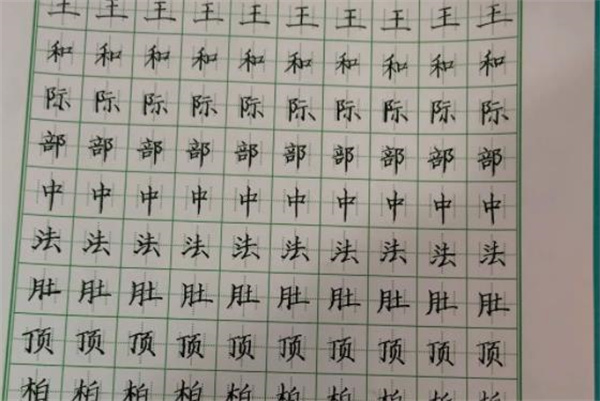 王王王王王王王王王王
和和和和和和和和和和
际际际际际际际际际际
部部部部部部部部部部
中中中中中中中中中中
法法法法法法法法法法
肚肚肚肚肚肚肚肚肚肚
顶顶顶顶顶顶顶顶顶顶
柏柏柏柏柏柏柏柏柏柏